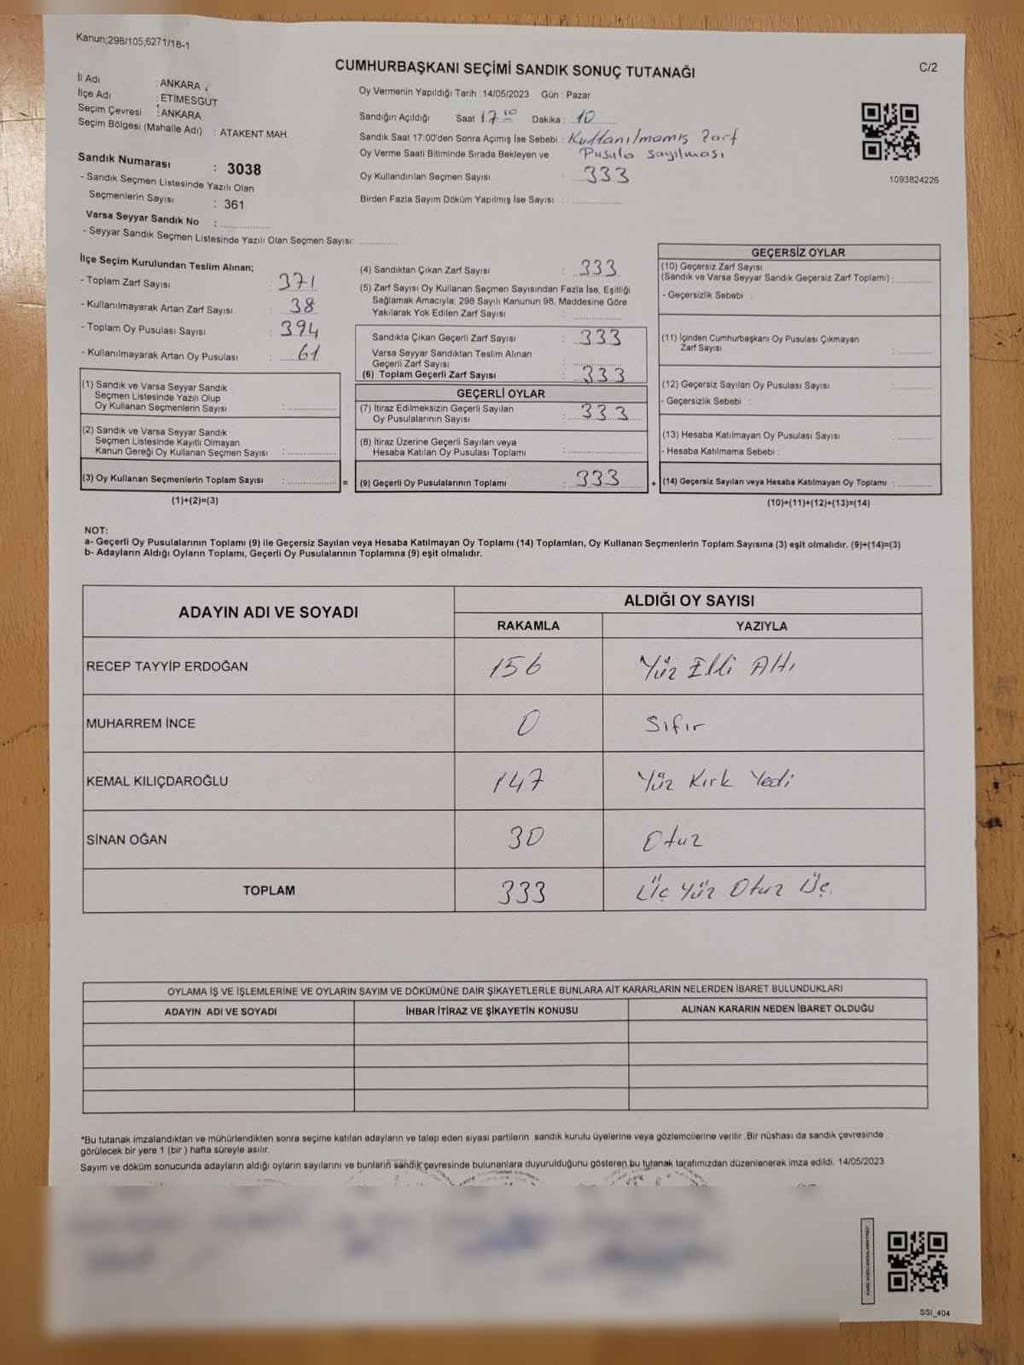 Kanun;298/105;6271/18-1
C/2
CUMHURBAŞKANI SEÇİMİ SANDIK SONUÇ TUTANAĞI
İl Adı : ANKARA
İlçe Adı : ETİMESGUT
Seçim Çevresi : ANKARA
Seçim Bölgesi (Mahalle Adı) : ATAKENT MAH.
Sandık Numarası : 3038
- Sandık Seçmen Listesinde Yazılı Olan
Seçmenlerin Sayısı : 361
Varsa Seyyar Sandık No :
- Seyyar Sandık Seçmen Listesinde Yazılı Olan Seçmen Sayısı:
Oy Vermenin Yapıldığı Tarih :14/05/2023 Gün : Pazar
Sandığın Açıldığı Saat : 17 10 Dakika : 10
Sandık Saat 17:00'den Sonra Açılmış İse Sebebi : Kullanılmamış Zarf
Oy Verme Saati Bitiminde Sırada Bekleyen ve Pusula Sayılması
Oy Kullandırılan Seçmen Sayısı : 333
Birden Fazla Sayım Döküm Yapılmış İse Sayısı :
1093824226
İlçe Seçim Kurulundan Teslim Alınan;
- Toplam Zarf Sayısı : 371
- Kullanılmayarak Artan Zarf Sayısı : 38
- Toplam Oy Pusulası Sayısı : 394
- Kullanılmayarak Artan Oy Pusulası : 61
(1) Sandık ve Varsa Seyyar Sandık
Seçmen Listesinde Yazılı Olup
Oy Kullanan Seçmenlerin Sayısı :
(2) Sandık ve Varsa Seyyar Sandık
Seçmen Listesinde Kayıtlı Olmayan
Kanun Gereği Oy Kullanan Seçmen Sayısı :
(3) Oy Kullanan Seçmenlerin Toplam Sayısı : =
(1)+(2)=(3)
(4) Sandıktan Çıkan Zarf Sayısı : 333
(5) Zarf Sayısı Oy Kullanan Seçmen Sayısından Fazla İse, Eşitliği
Sağlamak Amacıyla, 298 Sayılı Kanunun 98. Maddesine Göre
Yakılarak Yok Edilen Zarf Sayısı :
Sandıkta Çıkan Geçerli Zarf Sayısı : 333
Varsa Seyyar Sandıktan Teslim Alınan
Geçerli Zarf Sayısı :
(6) Toplam Geçerli Zarf Sayısı : 333
GEÇERLİ OYLAR
(7) İtiraz Edilmeksizin Geçerli Sayılan
Oy Pusulalarının Sayısı : 333
(8) İtiraz Üzerine Geçerli Sayılan veya
Hesaba Katılan Oy Pusulası Toplamı :
(9) Geçerli Oy Pusulalarının Toplamı : 333 +
GEÇERSİZ OYLAR
(10) Geçersiz Zarf Sayısı
(Sandık ve Varsa Seyyar Sandık Geçersiz Zarf Toplamı) :
- Geçersizlik Sebebi :
(11) İçinden Cumhurbaşkanı Oy Pusulası Çıkmayan
Zarf Sayısı :
(12) Geçersiz Sayılan Oy Pusulası Sayısı :
- Geçersizlik Sebebi :
(13) Hesaba Katılmayan Oy Pusulası Sayısı :
- Hesaba Katılmama Sebebi :
(14) Geçersiz Sayılan veya Hesaba Katılmayan Oy Toplamı :
(10)+(11)+(12)+(13)=(14)
NOT:
a- Geçerli Oy Pusulalarının Toplamı (9) ile Geçersiz Sayılan veya Hesaba Katılmayan Oy Toplamı (14) Toplamları, Oy Kullanan Seçmenlerin Toplam Sayısına (3) eşit olmalıdır. (9)+(14)=(3)
b- Adayların Aldığı Oyların Toplamı, Geçerli Oy Pusulalarının Toplamına (9) eşit olmalıdır.
ADAYIN ADI VE SOYADI
ALDIĞI OY SAYISI
RAKAMLA YAZIYLA
RECEP TAYYİP ERDOĞAN 156 Yüz Elli Altı
MUHARREM İNCE 0 Sıfır
KEMAL KILIÇDAROĞLU 147 Yüz Kırk Yedi
SİNAN OĞAN 30 Otuz
TOPLAM 333 Üç Yüz Otuz Üç.
OYLAMA İŞ VE İŞLEMLERİNE VE OYLARIN SAYIM VE DÖKÜMÜNE DAİR ŞİKAYETLERLE BUNLARA AİT KARARLARIN NELERDEN İBARET BULUNDUKLARI
ADAYIN ADI VE SOYADI İHBAR İTİRAZ VE ŞİKAYETİN KONUSU ALINAN KARARIN NEDEN İBARET OLDUĞU
*Bu tutanak imzalandıktan ve mühürlendikten sonra seçime katılan adayların ve talep eden siyasi partilerin sandık kurulu üyelerine veya gözlemcilerine verilir .Bir nüshası da sandık çevresinde
görülecek bir yere 1 (bir ) hafta süreyle asılır.
Sayım ve döküm sonucunda adayların aldığı oyların sayılarını ve bunların sandık çevresinde bulunanlara duyurulduğunu gösteren bu tutanak tarafımızdan düzenlenerek imza edildi. 14/05/2023
SSI_404